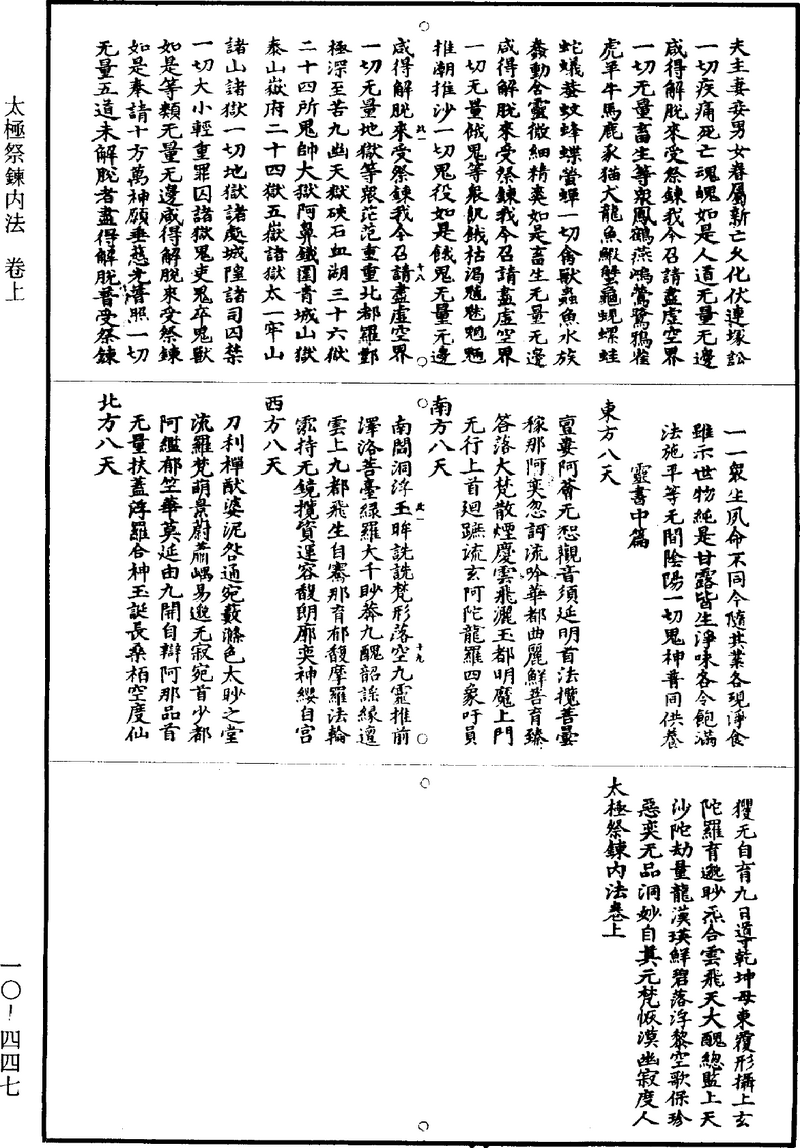 太極祭鍊內法　卷上
一〇-四四七
夫主妻妾男女眷屬新亡久化伏連塚訟
一切疾痛死亡魂魄如是人道无量无邊
咸得解脫來受祭鍊我今召請盡虛空界
一切无量畜生等衆鳳鶴燕鴻鶯鷺鴉雀
虎羊牛馬鹿豕猫犬龍魚鰕蟹龜蜆螺蛙
蛇蟻蚤蚊蜂蝶螢蟬一切禽獸蟲魚水族
蠢動含靈微細精爽如是畜生无量无邊
咸得解脫來受祭鍊我今召請盡虛空界
一切无量餓鬼等衆飢餓枯渴魑魅魍魎
推潮推沙一切鬼役如是餓鬼无量无邊
咸得解脫來受祭鍊我今召請盡虛空界
一切无量地獄等衆茫茫重重北都羅酆
極深至苦九幽天獄硤石血湖三十六獄
二十四所鬼帥大獄阿鼻鐵圍青城山獄
泰山嶽府二十四獄五嶽諸獄太一牢山
諸山諸獄一切地獄諸處城隍諸司囚禁
一切大小輕重罪囚諸獄鬼吏鬼卒鬼獸
如是等類无量无邊咸得解脫來受祭鍊
如是奉請十方萬神願垂慈光普照一切
无量五道未解脫者盡得解脫普受祭鍊
一一衆生夙命不同今隨其業各現淨食
雖示世物純是甘露皆生淨味各令飽滿
法施平等无間陰陽一切鬼神普同供養
靈書中篇
東方八天
亶婁阿薈无惒觀音須延明首法攬菩曇
稼那阿奕忽訶流吟華都曲麗鮮菩育臻
答落大梵散煙慶雲飛灑玉都明魔上門
无行上首迴蹠流玄阿陀龍羅四象吁員
南方八天
南閻洞浮玉眸詵詵梵形落空九靈推前
澤洛菩臺綠羅大千眇莽九醜韶謠緣邅
雲上九都飛生自騫那育郁馥摩羅法輪
霐持无鏡攬資運容馥朗廓奕神纓自宮
西方八天
刀利禪猷婆泥咎通宛藪滌色太眇之堂
流羅梵萌景蔚蕭嵎易邈无寂宛首少都
阿濫郁竺華莫延由九開自辯阿那品首
无量扶蓋浮羅合神玉誕長桑栢空度仙
北方八天
玃无自育九日導乾坤母東覆形攝上玄
陀羅育邈眇炁合雲飛天大醜總監上天
沙陀劫量龍漢瑛鮮碧落浮黎空歌保珍
惡奕无品洞妙自真元梵恢漠幽寂度人
太極祭鍊內法卷上